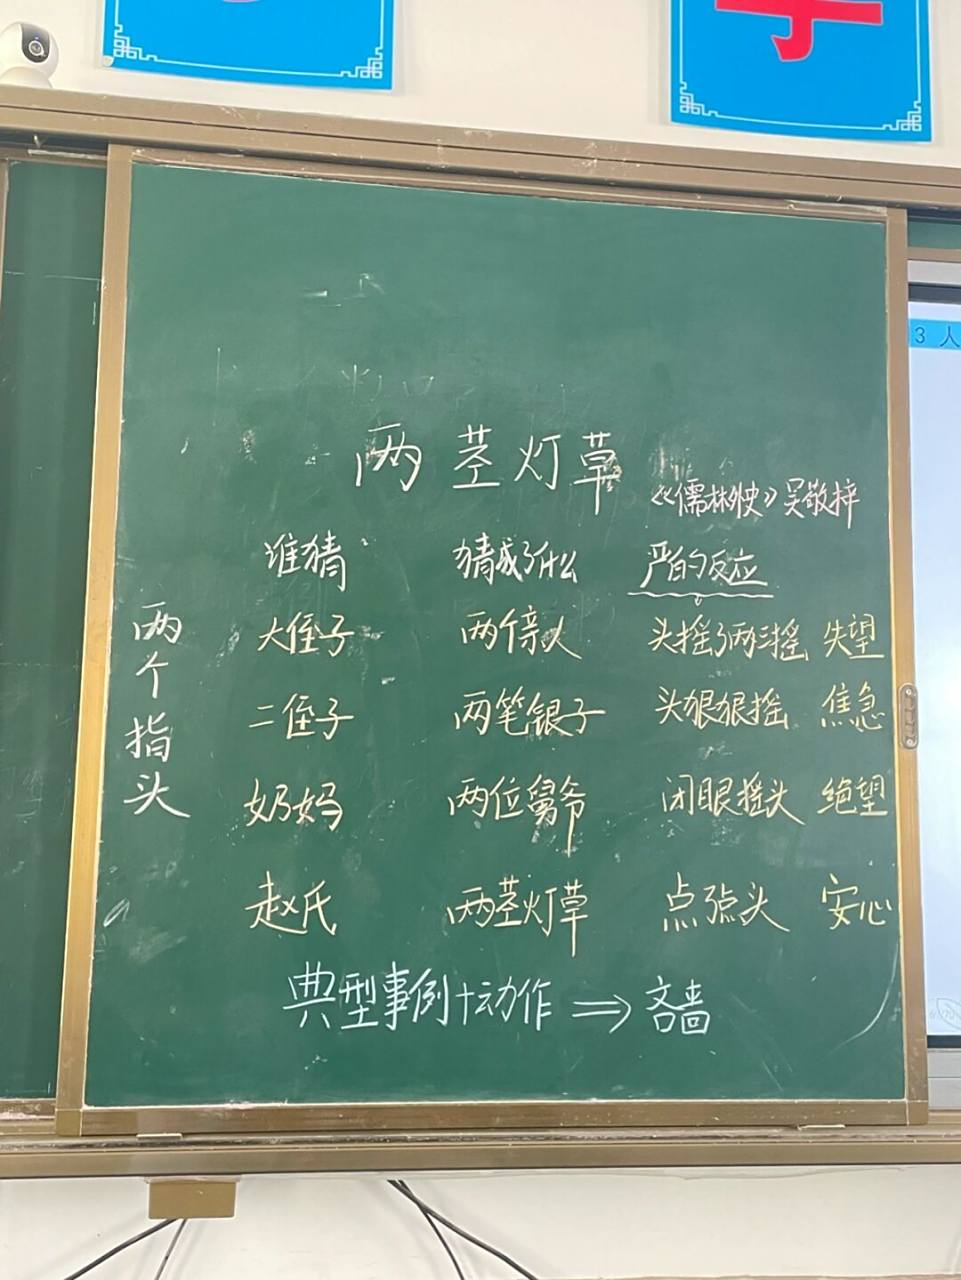 学
3 人
两茎灯草
《儒林外史》吴敬梓
谁猜 猜成了什么 严的反应
两个指头
大侄子 两个亲人 头摇了两三摇 失望
二侄子 两笔银子 头狠狠摇 焦急
奶妈 两位舅爷 闭眼摇头 绝望
赵氏 两茎灯草 点点头 安心
典型事例+动作 ⇒ 吝啬